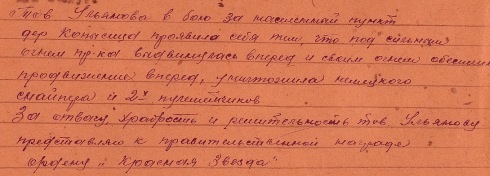 "Тов Ульянова в бою за населенный пункт
дер Копасица проявила себя тем, что под сильным
огнем пр-ка выдвинулась вперед и своим огнем обеспечила
продвижение вперед, уничтожила немецкого
снайпера и 2х пулеметчиков
За отвагу, храбрость и решительность тов. Ульянову
представляю к правительственной награде
ордену "Красная Звезда"